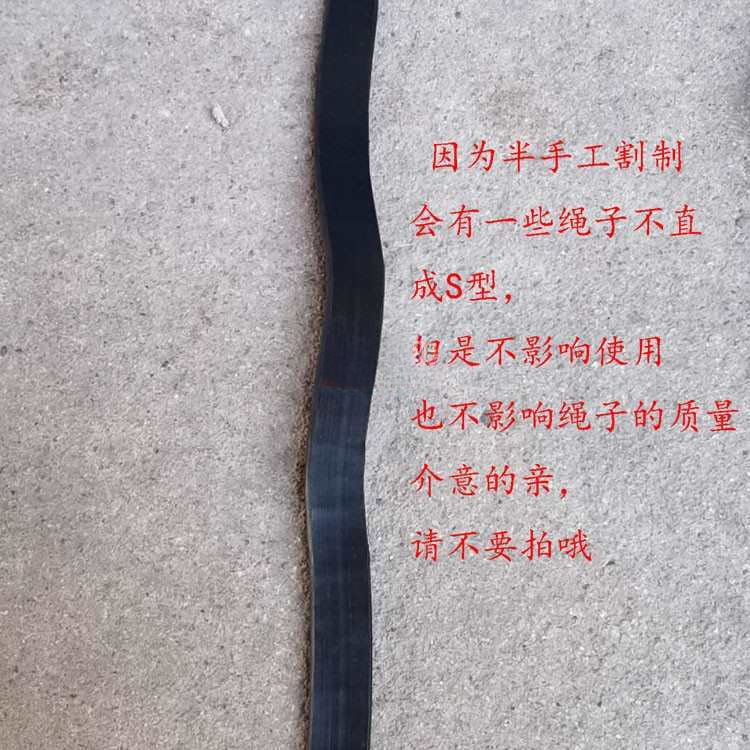 因为半手工割制
会有一些绳子不直
成S型，
但是不影响使用
也不影响绳子的质量
介意的亲，
请不要拍哦